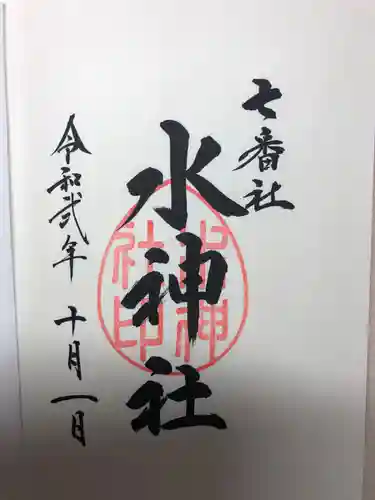 七番社
水神社
令和弐年 十月一日
水神
社印